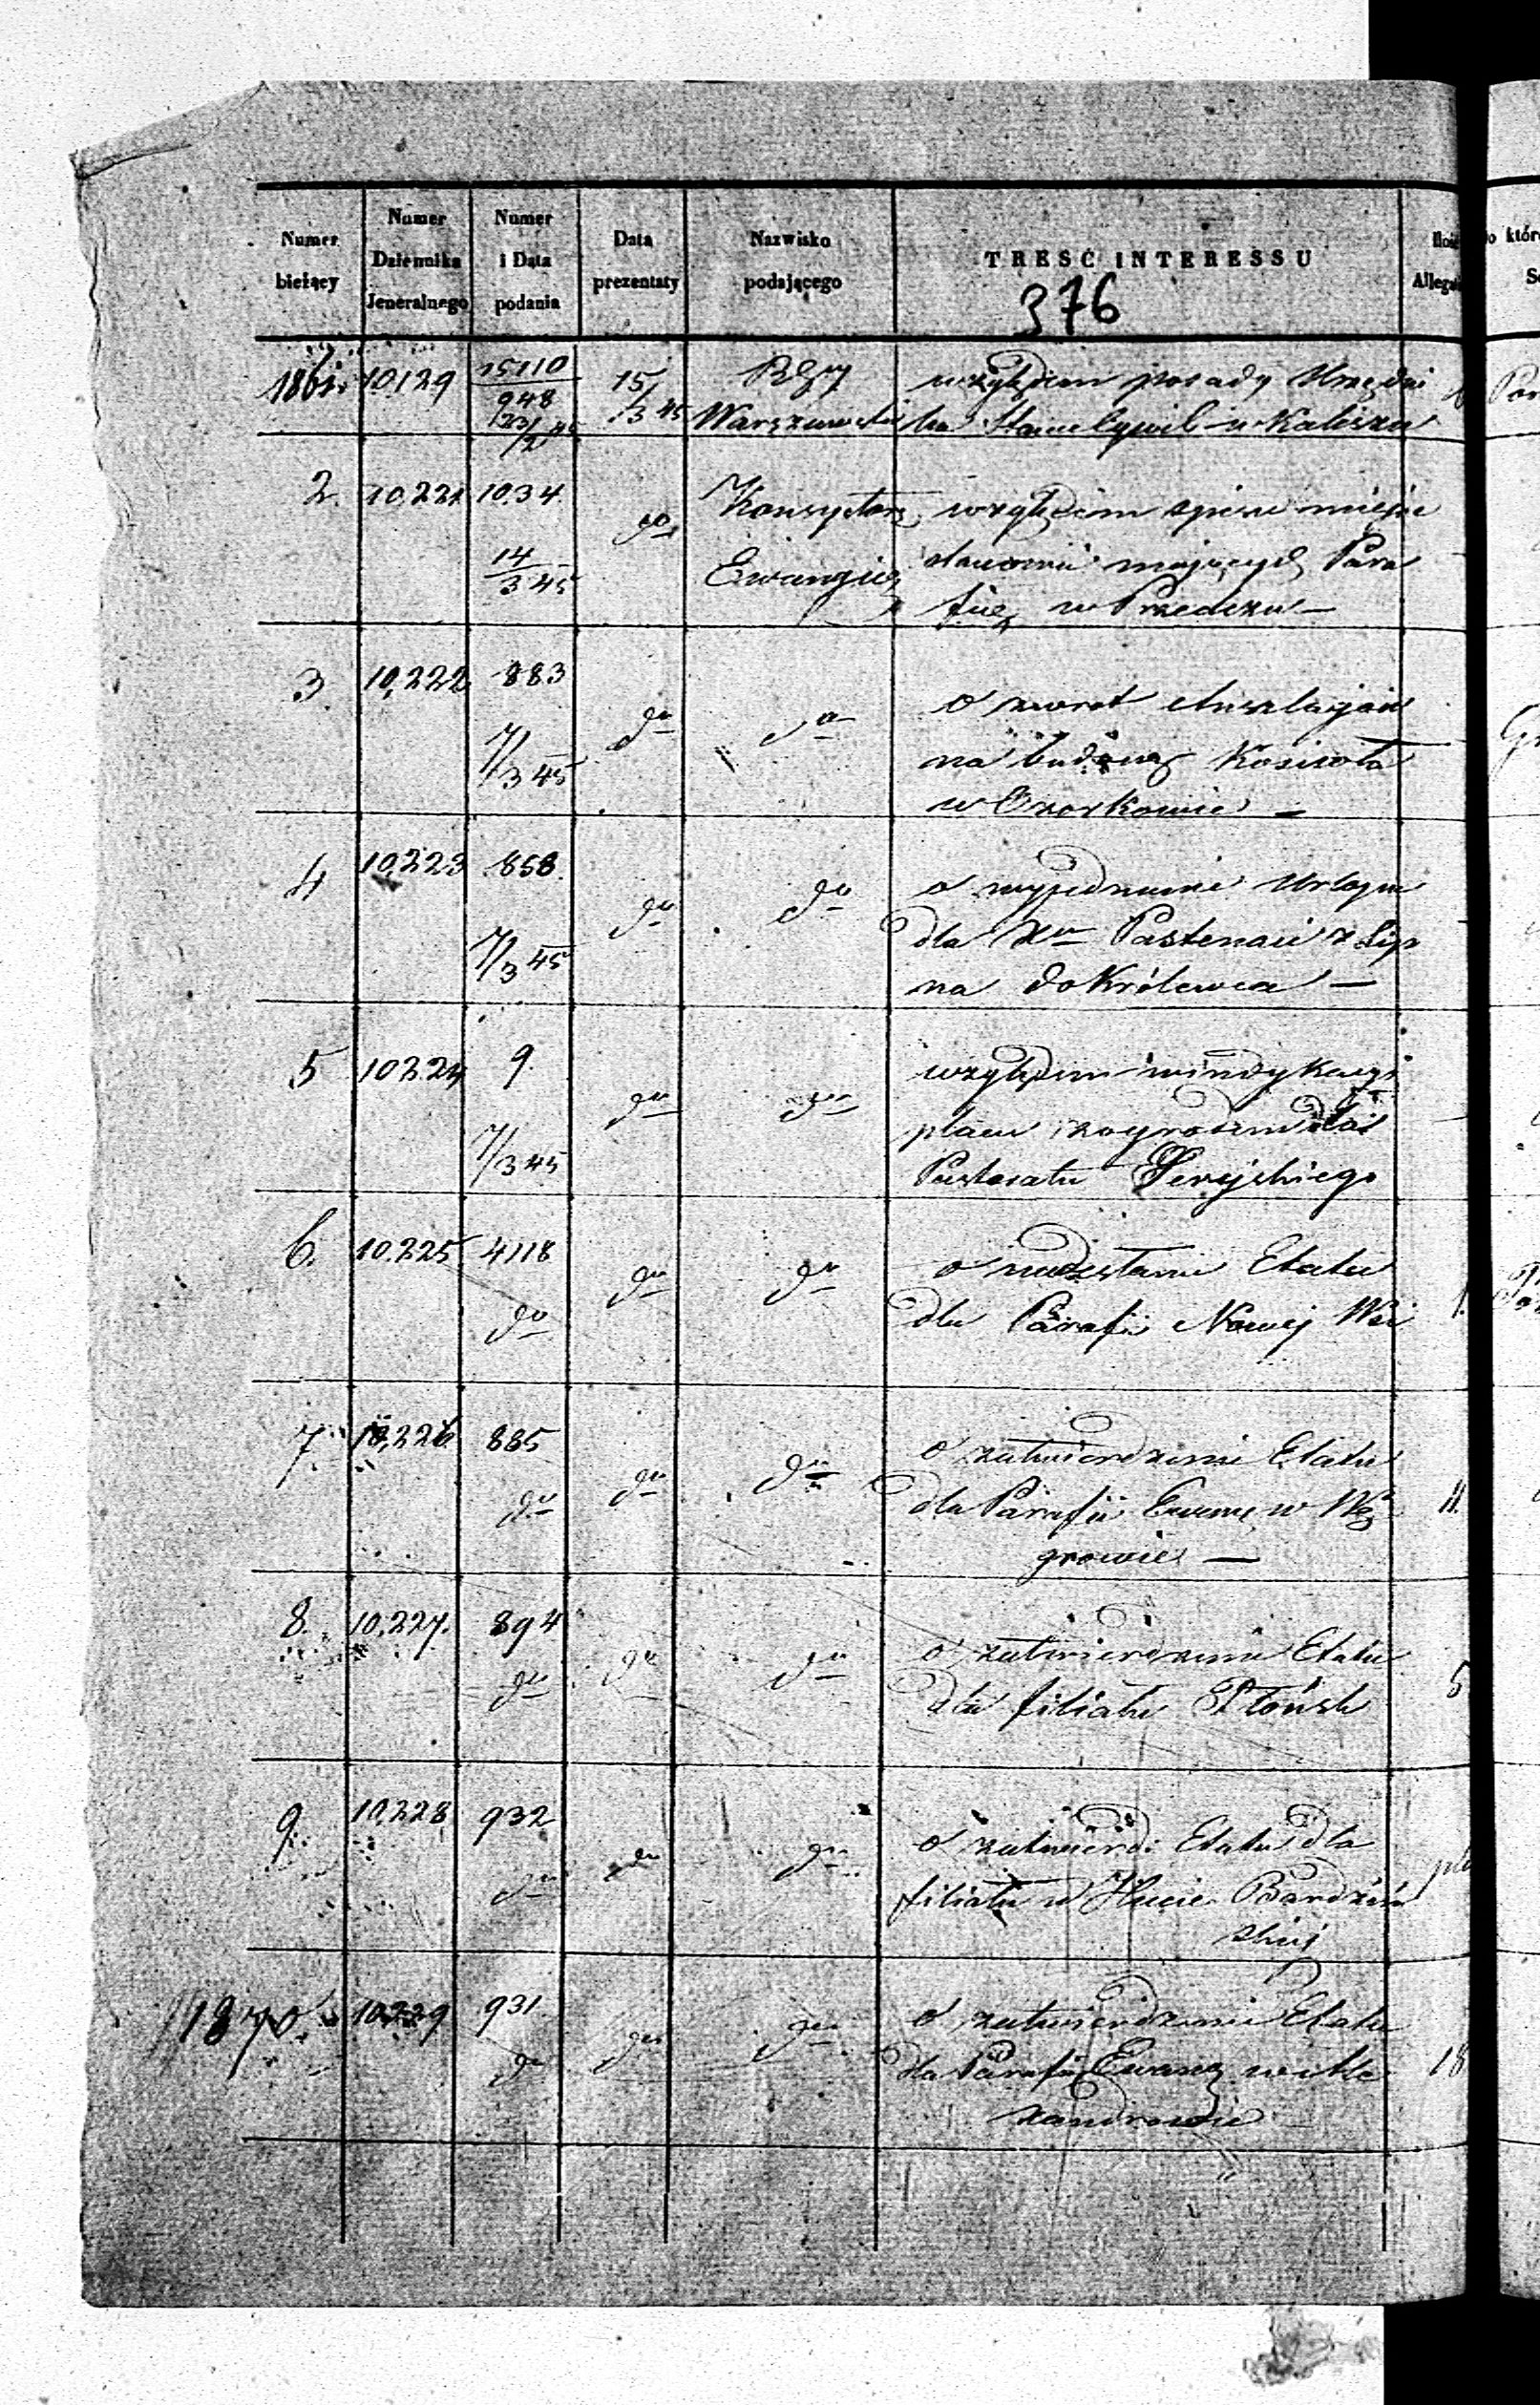 Numer bieżący
Numer Dziennika Jeneralnego
Numer i Data podania
Data prezentaty
Nazwisko podającego
TRESĆ INTERESSU
376
1861. 10129 15110 948 23/2 45 15/3 45 Warszawski względem posady Urzędni
ka Stanu Cywil w Kaliszu
2. 10,221 1034 14/3 45 do Konsystorz Ewangiel względem spisu miejsc
stanowić mających Para
fię w Przedczu —
3 10,222 883 7/3 45 do do o zwrot Anszlagów
na budowę Kościoła
w Ozorkowie —
4 10,223 858. 7/3 45 do do o wyjednanie Urlopu
dla Xa Pastenaci z Lip
na do Królewca —
5 10224 9. 7/3 45 do do względem windykacyi
placu z ogrodem dla
Pastoratu
6. 10.225 4118 do do do o nadesłanie Etatu
dla Parafii Nowej Wsi 1.
7. 10,226 885 do do do o zatwierdzenie Etatu
dla Parafii Ewang w Wę 11.
growie —
8. 10,227. 894 do do do o zatwierdzenie Etatu
dla filiału Płońsk 5
9. 10,228 932 do do do o zatwierdz Etatu dla
filiału w Hucie Bardziń
skiej
1870. 10229 931 do do do o zatwierdzenie Etatu
dla Parafii Ewang w Ale 18
xandrowie